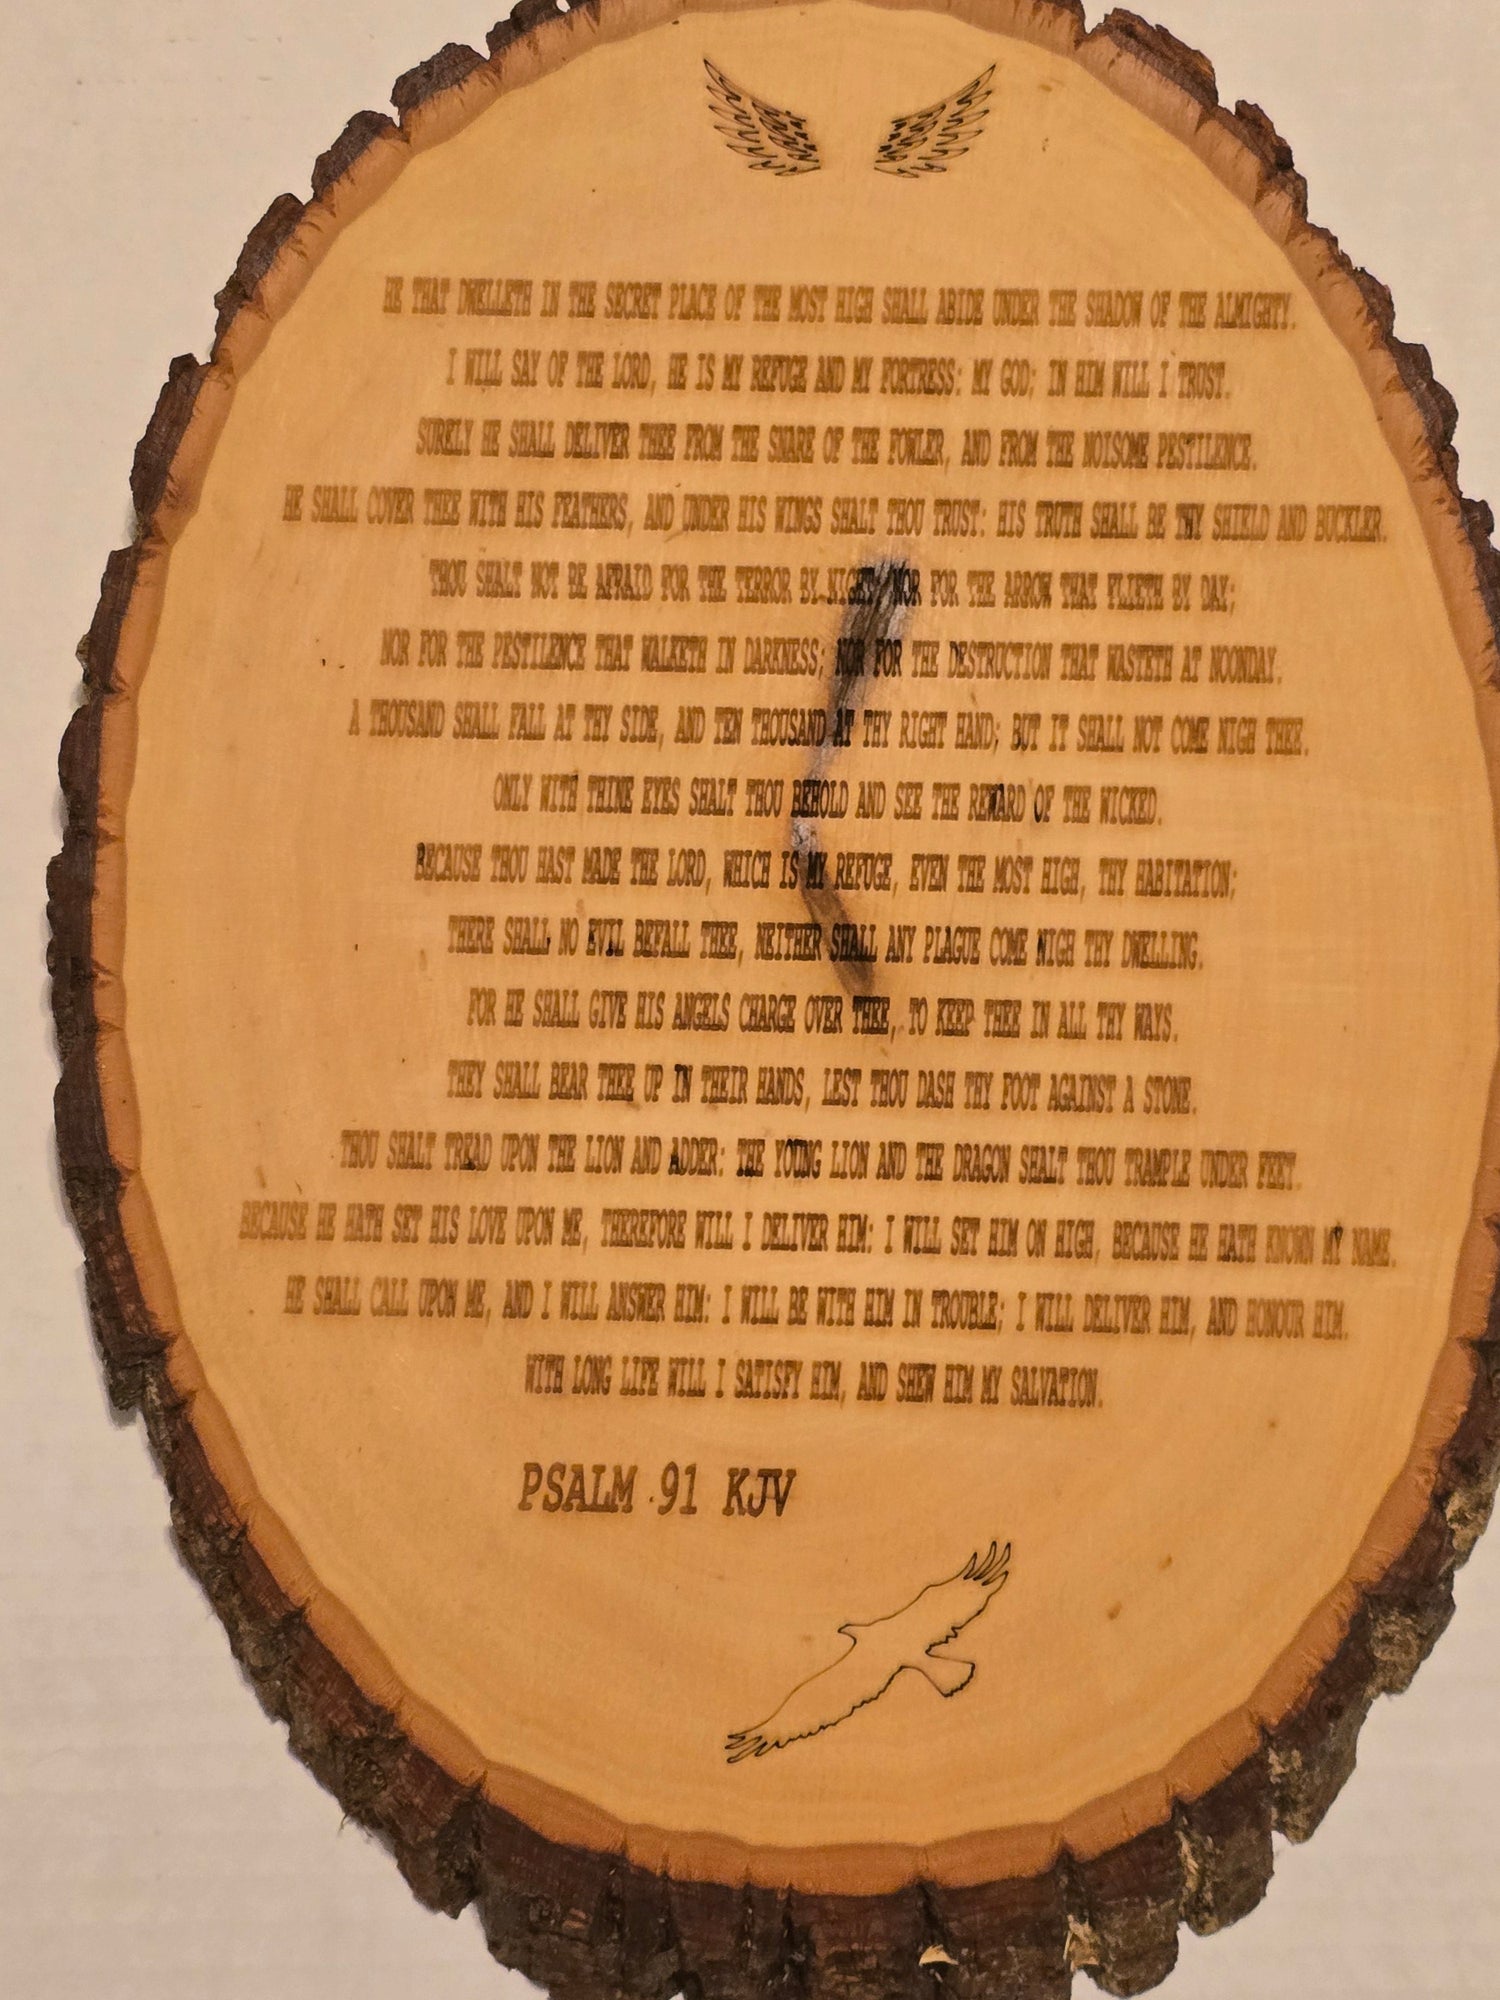 HE THAT DWELLETH IN THE SECRET PLACE OF THE MOST HIGH SHALL ABIDE UNDER THE SHADOW OF THE ALMIGHTY.
I WILL SAY OF THE LORD, HE IS MY REFUGE AND MY FORTRESS: MY GOD; IN HIM WILL I TRUST.
SURELY HE SHALL DELIVER THEE FROM THE SNARE OF THE FOWLER, AND FROM THE NOISOME PESTILENCE.
HE SHALL COVER THEE WITH HIS FEATHERS, AND UNDER HIS WINGS SHALT THOU TRUST: HIS TRUTH SHALL BE THY SHIELD AND BUCKLER.
THOU SHALT NOT BE AFRAID FOR THE TERROR BY NIGHT; NOR FOR THE ARROW THAT FLIETH BY DAY;
NOR FOR THE PESTILENCE THAT WALKETH IN DARKNESS; NOR FOR THE DESTRUCTION THAT WASTETH AT NOONDAY.
A THOUSAND SHALL FALL AT THY SIDE, AND TEN THOUSAND AT THY RIGHT HAND; BUT IT SHALL NOT COME NIGH THEE.
ONLY WITH THINE EYES SHALT THOU BEHOLD AND SEE THE REWARD OF THE WICKED.
BECAUSE THOU HAST MADE THE LORD, WHICH IS MY REFUGE, EVEN THE MOST HIGH, THY HABITATION;
THERE SHALL NO EVIL BEFALL THEE, NEITHER SHALL ANY PLAGUE COME NIGH THY DWELLING.
FOR HE SHALL GIVE HIS ANGELS CHARGE OVER THEE, TO KEEP THEE IN ALL THY WAYS.
THEY SHALL BEAR THEE UP IN THEIR HANDS, LEST THOU DASH THY FOOT AGAINST A STONE.
THOU SHALT TREAD UPON THE LION AND ADDER: THE YOUNG LION AND THE DRAGON SHALT THOU TRAMPLE UNDER FEET.
BECAUSE HE HATH SET HIS LOVE UPON ME, THEREFORE WILL I DELIVER HIM: I WILL SET HIM ON HIGH, BECAUSE HE HATH KNOWN MY NAME.
HE SHALL CALL UPON ME, AND I WILL ANSWER HIM: I WILL BE WITH HIM IN TROUBLE; I WILL DELIVER HIM, AND HONOUR HIM.
WITH LONG LIFE WILL I SATISFY HIM, AND SHEW HIM MY SALVATION.
PSALM 91 KJV